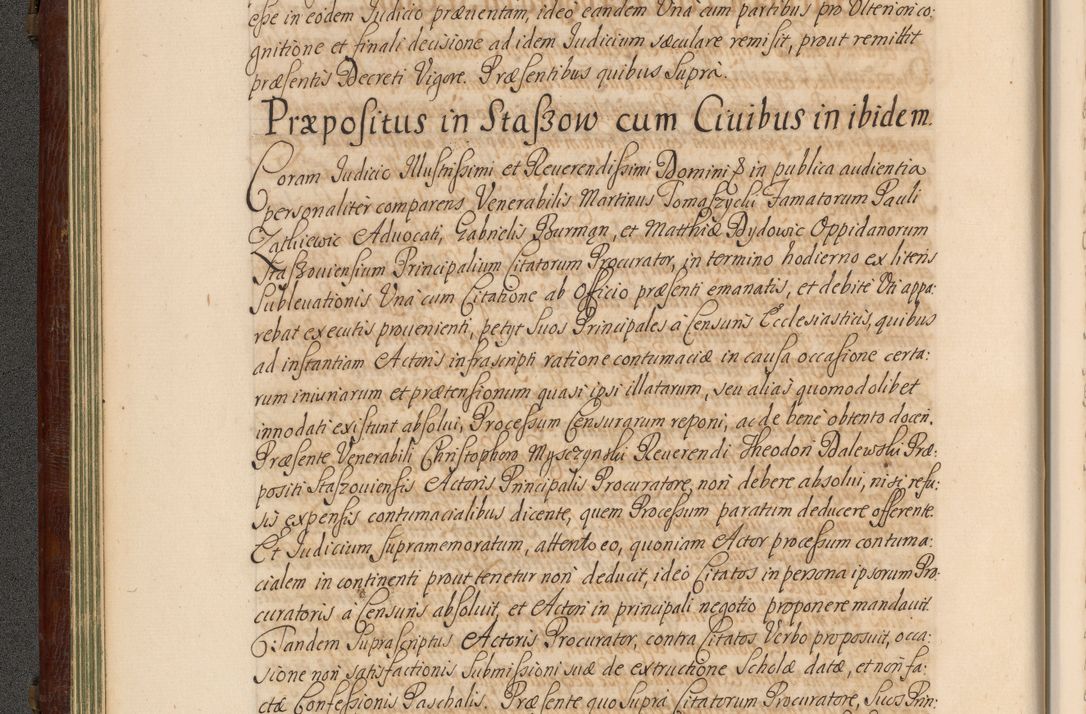 eſse in eodem Judicio præuentam, ideo eandem Una cum partibus pro Ulteriori co:
gnitione et finali decisione ad idem Judicium sæculare remisit, prout remittit
præsentis Decreti Vigore. Præsentibus quibus supra.
Præpositus in Staſzow cum Ciuibus in ibidem.
Coram Judicio Illustriſsimi et Reuerendiſsimi Domini & in publica audientia
personaliter comparens Venerabilis Martinus Tomaſzycki Famatorum Pauli
Advocati, Gabrielis Burman, et Matthiæ Dydowic Oppidanorum
Staſzouiensium Principalium Citatorum Procurator, in termino hodierno ex literis
subleuationis Una cum Citatione ab Officio præsenti emanatis, et debite Uti appa:
rebat executis prouenienti, petyt suos Principales à Censuris Ecclesiasticis, quibus
ad instantiam Actoris infrascripti ratione contumaciæ in causa occasione certa:
rum iniuriarum et prætensionum quasi ipsi illatarum, seu alias quomodolibet
innodati existunt absolui, Proceſsum Censurarum reponi, ac de bene obtento doceri.
Præsente Venerabili Christophoro Mysczynski Reuerendi Theodori Dalewski Præ:
positi Staszouiensis Actoris Principalis Procuratore, non debere absolui, nisi refu:
sis expensis contumacialibus dicente, quem Proceſsum paratum deducere offerente.
Et Judicium supramemoratum, attento eo, quoniam Actor proceſsum contuma:
cialem in continenti prout tenetur non deducit, ideo Citatos in persona ipsorum Pro:
curatoris a Censuris absoluit, et Actori in principali negotio proponere mandauit.
Tandem suprascriptus Actoris Procurator, contra Citatos Verbo proposuit, occa:
sione non satisfactionis submiſsioni suæ de extructione Scholæ datæ, et non fa:
ctæ Confeſsionis Paschalis. Præsente quo supra Citatorum Procuratore, suos Prin: